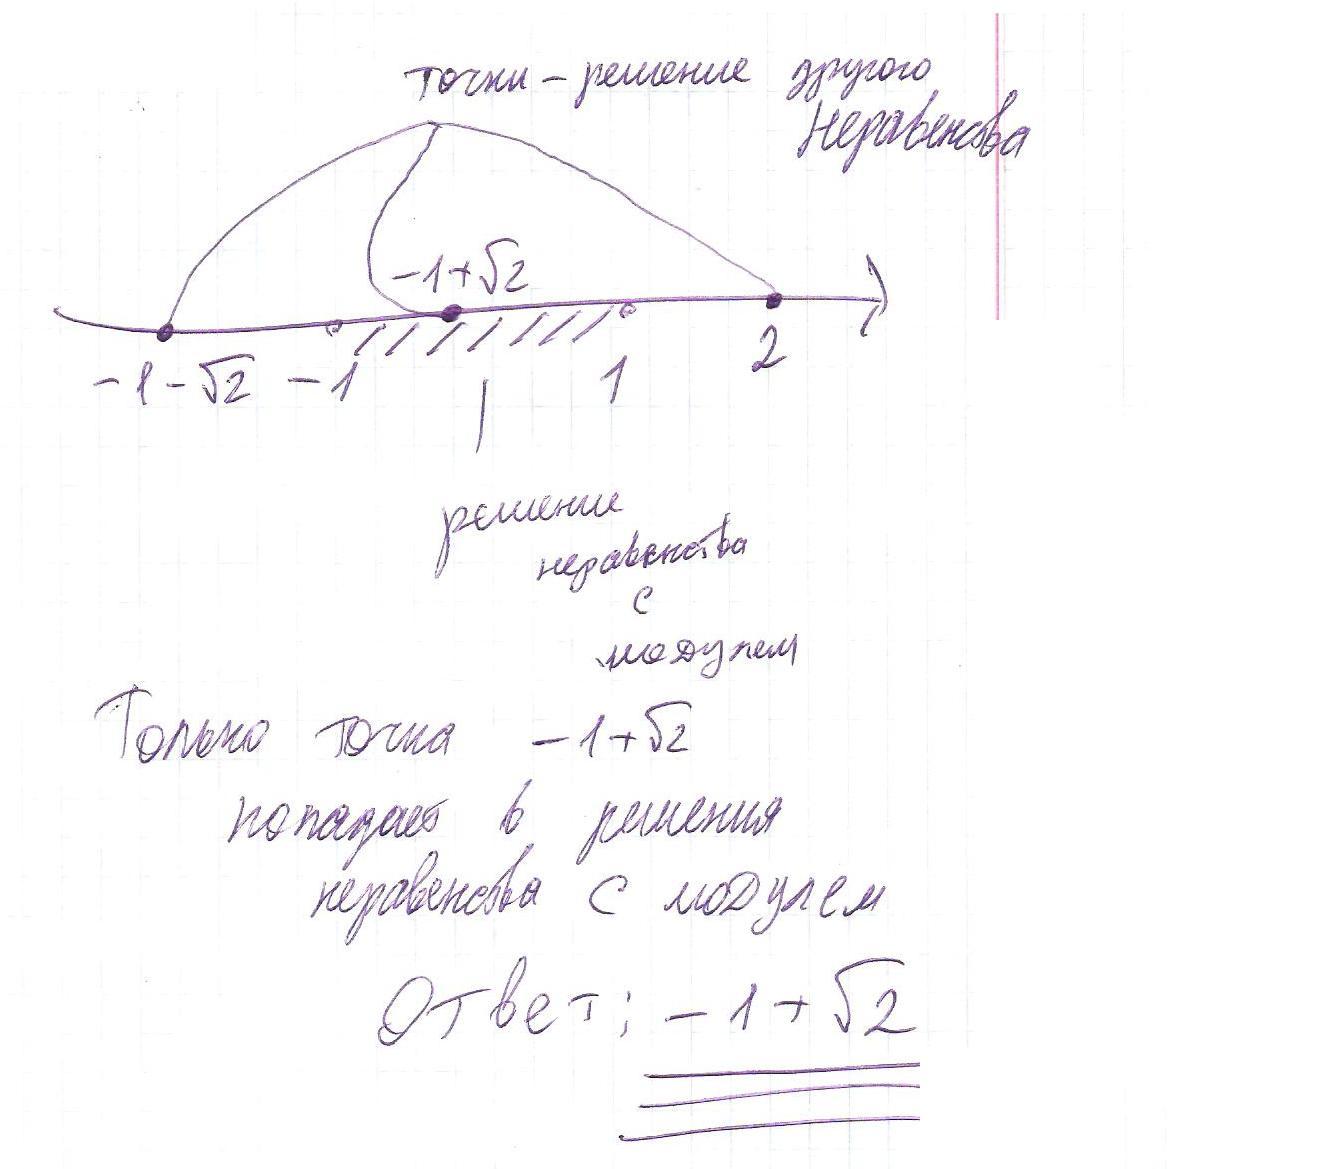 точки - решение другого
Неравенства
-1+√2
-1-√2 -1 1 2
решение
неравенства
с
модулем
Только точка -1+√2
попадает в решения
неравенства с модулем
Ответ: -1+√2